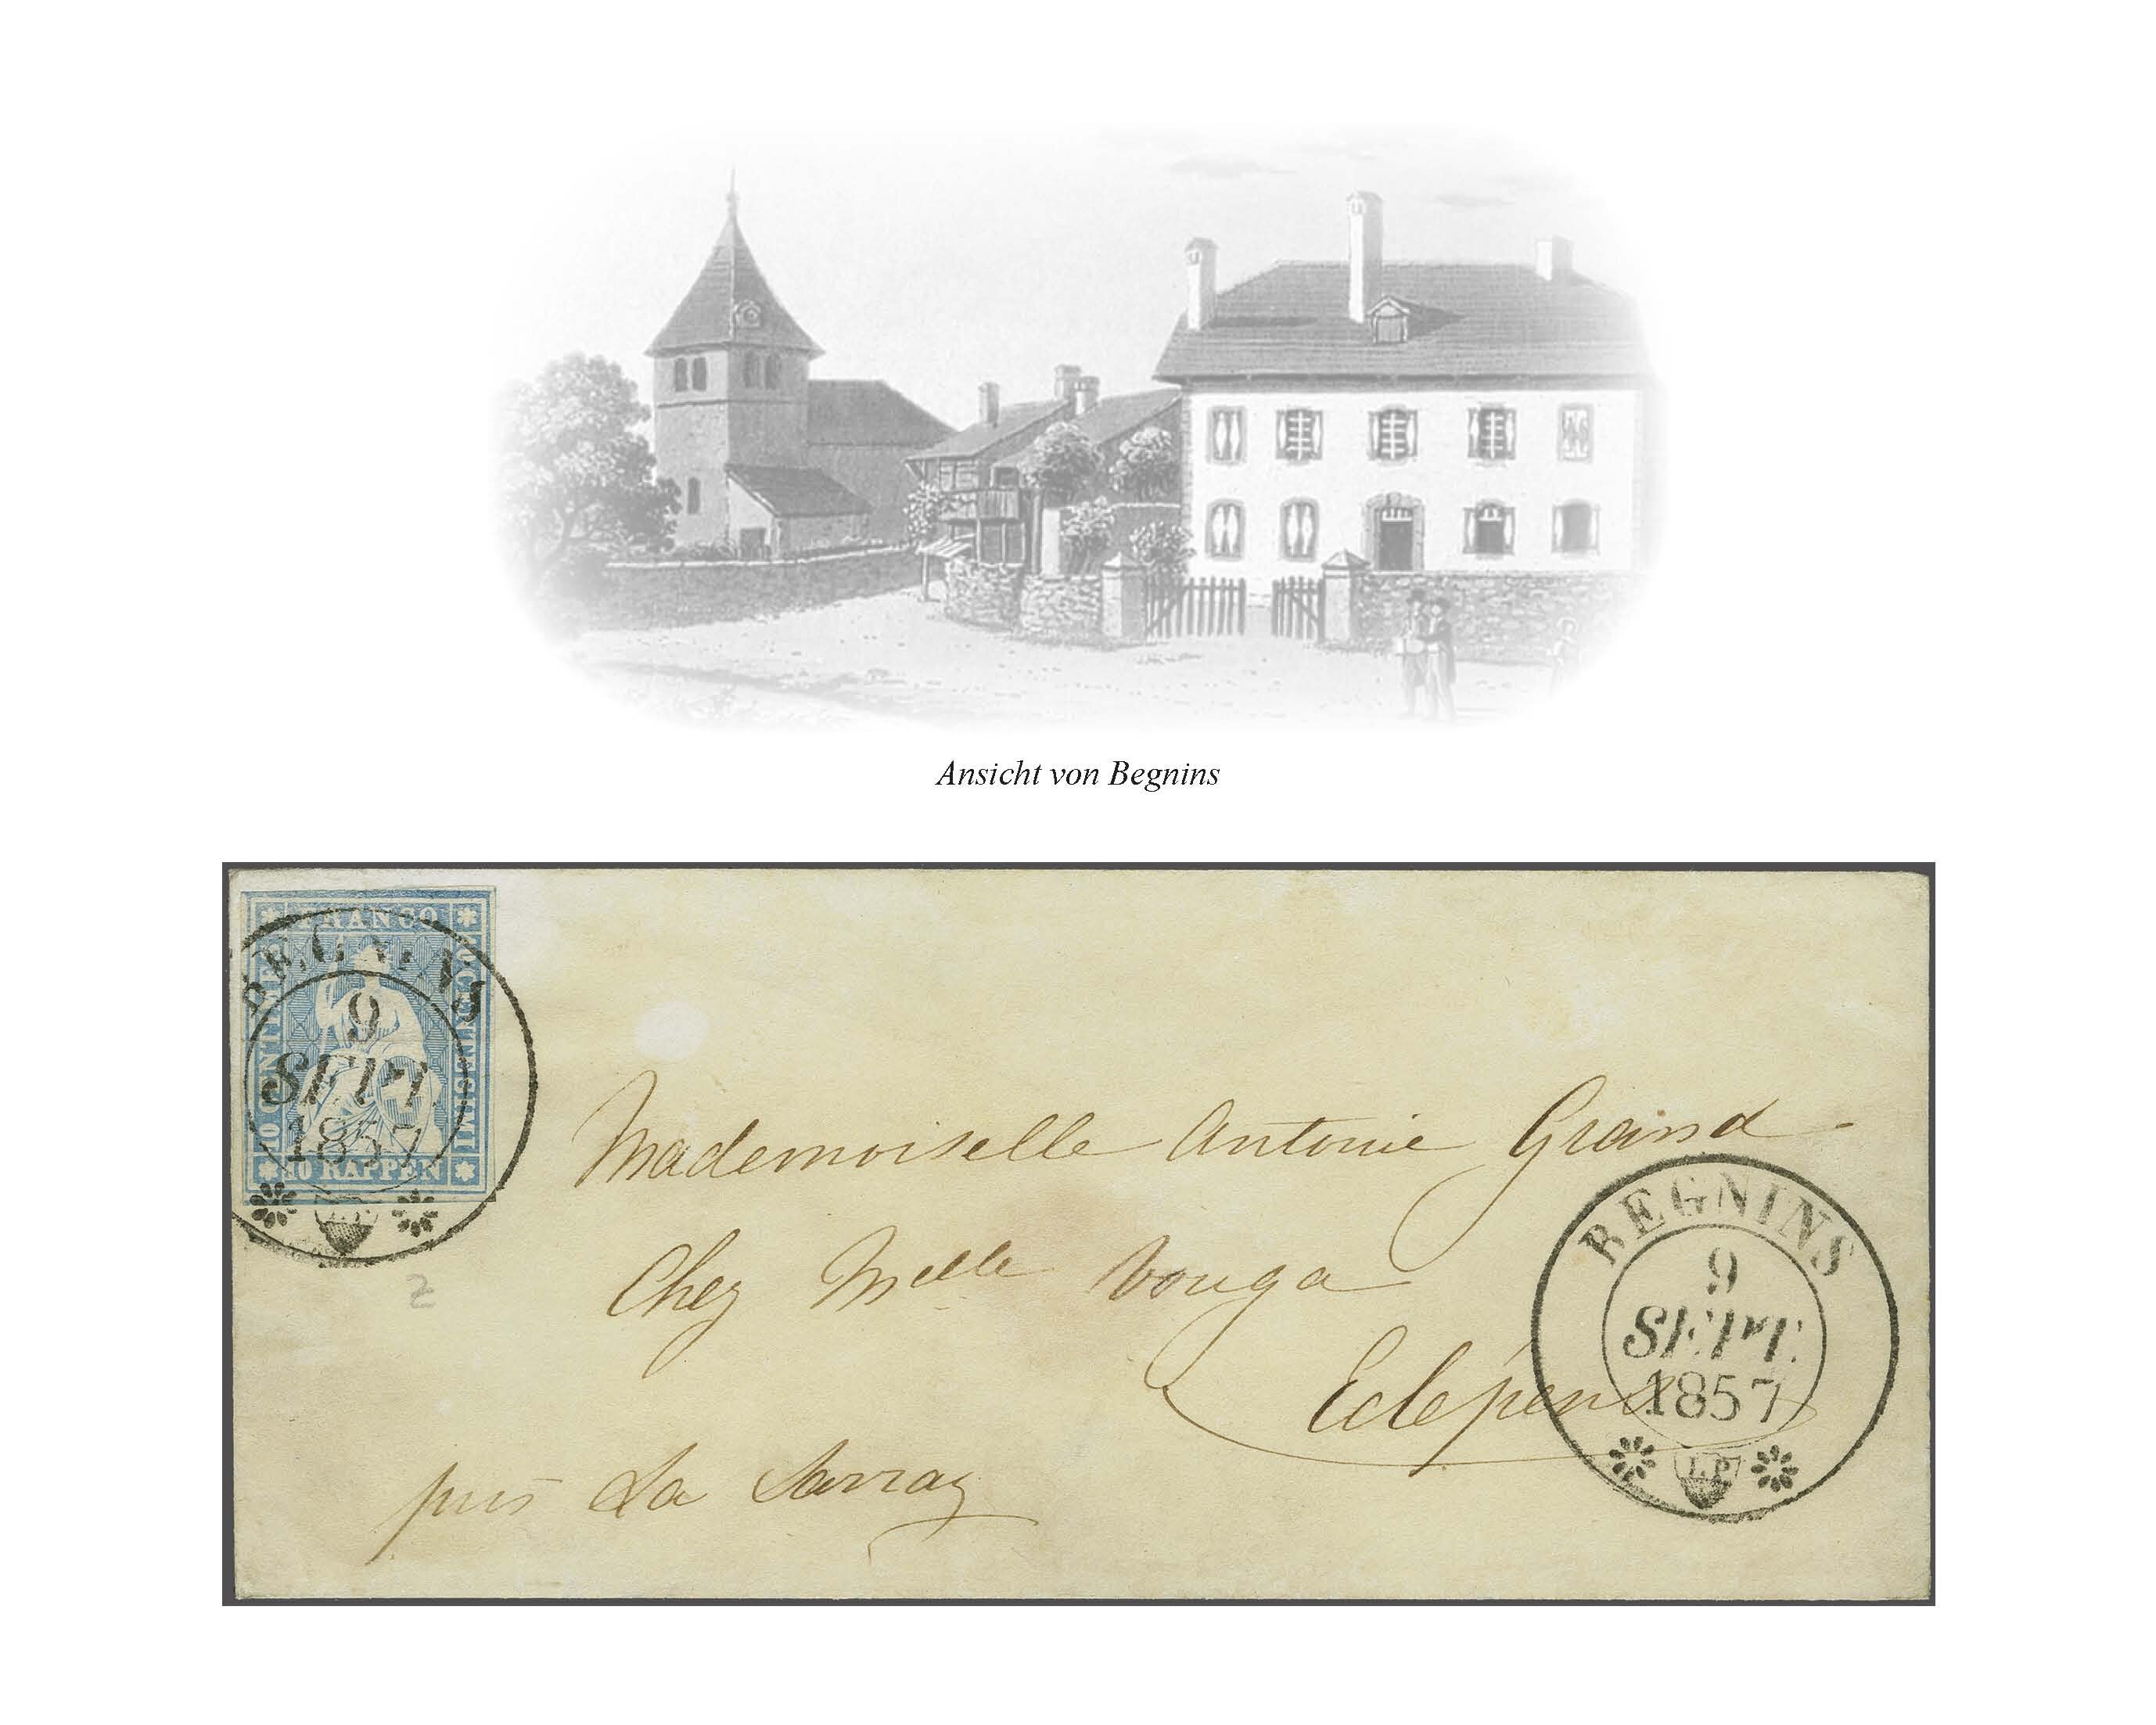 Ansicht von Begnins
FRANCO
10 CENTIMES
10 CENTESIMI
10 RAPPEN
BEGNINS
9
SEPT.
1857
Mademoiselle Antonie Grand
Chez Melle Vouga
Eclépens
près La Sarraz
BEGNINS
9
SEPT.
1857
Z